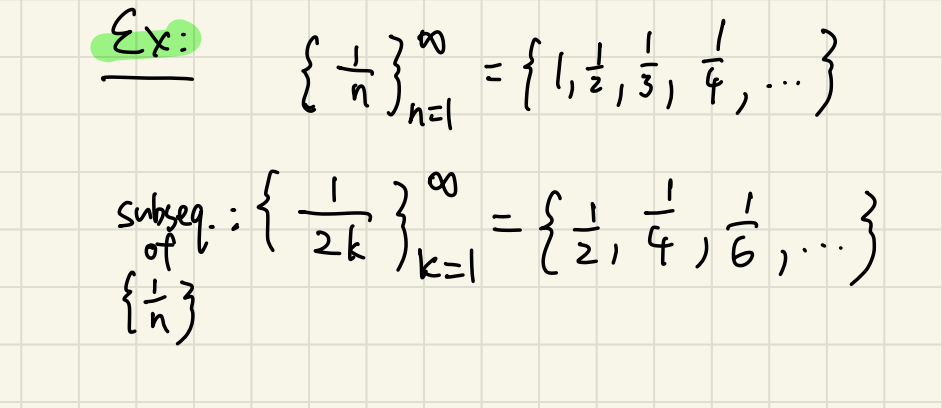 Ex: { 1/n }_{n=1}^∞ = { 1, 1/2, 1/3, 1/4, ... }
subseq. of {1/n} : { 1/2k }_{k=1}^∞ = { 1/2, 1/4, 1/6, ... }